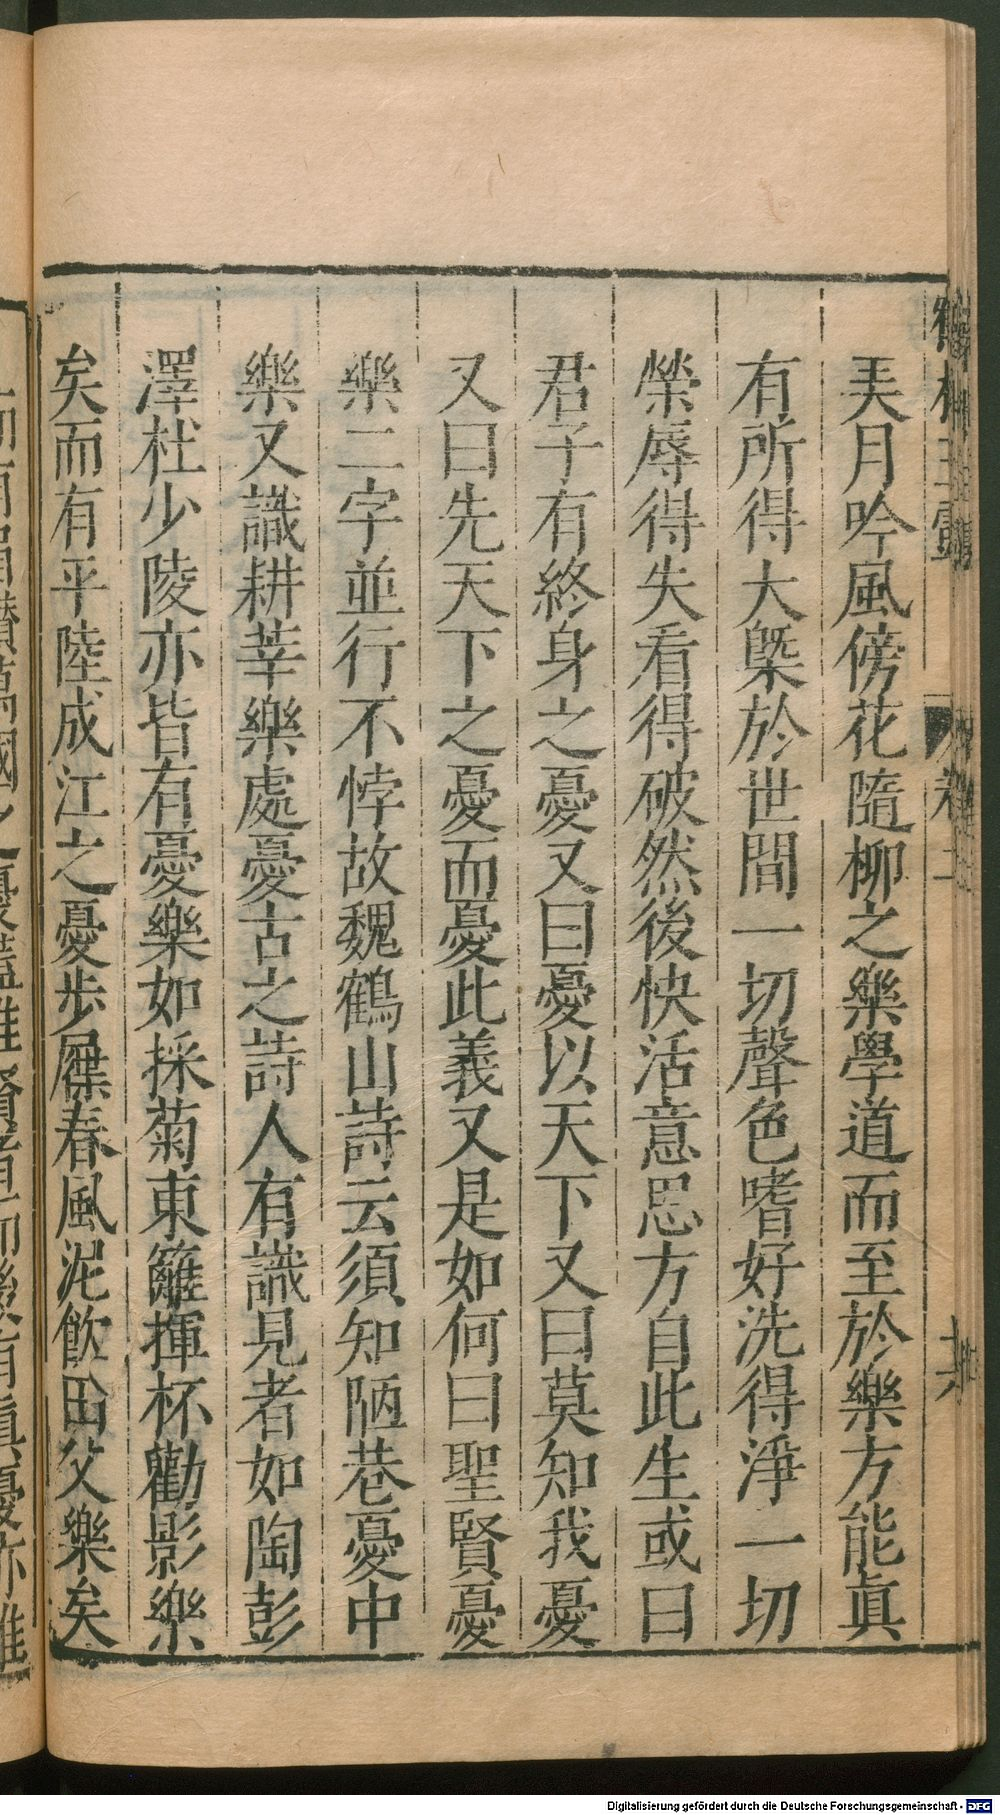 弄月吟風傍花隨柳之樂學道而至於樂方能眞
有所得大槩於世間一切聲色嗜好洗得淨一切
榮辱得失看得破然後快活意思方自此生或曰
君子有終身之憂又曰憂以天下又曰莫知我憂
又曰先天下之憂而憂此義又是如何曰聖賢憂
樂二字並行不悖故魏鶴山詩云須知陋巷憂中
樂又識耕莘樂處憂古之詩人有識見者如陶彭
澤杜少陵亦皆有憂樂如採菊東籬揮杯勸影樂
矣而有平陸成江之憂步屧春風泥飲田父樂矣
Digitalisierung gefördert durch die Deutsche Forschungsgemeinschaft - DFG